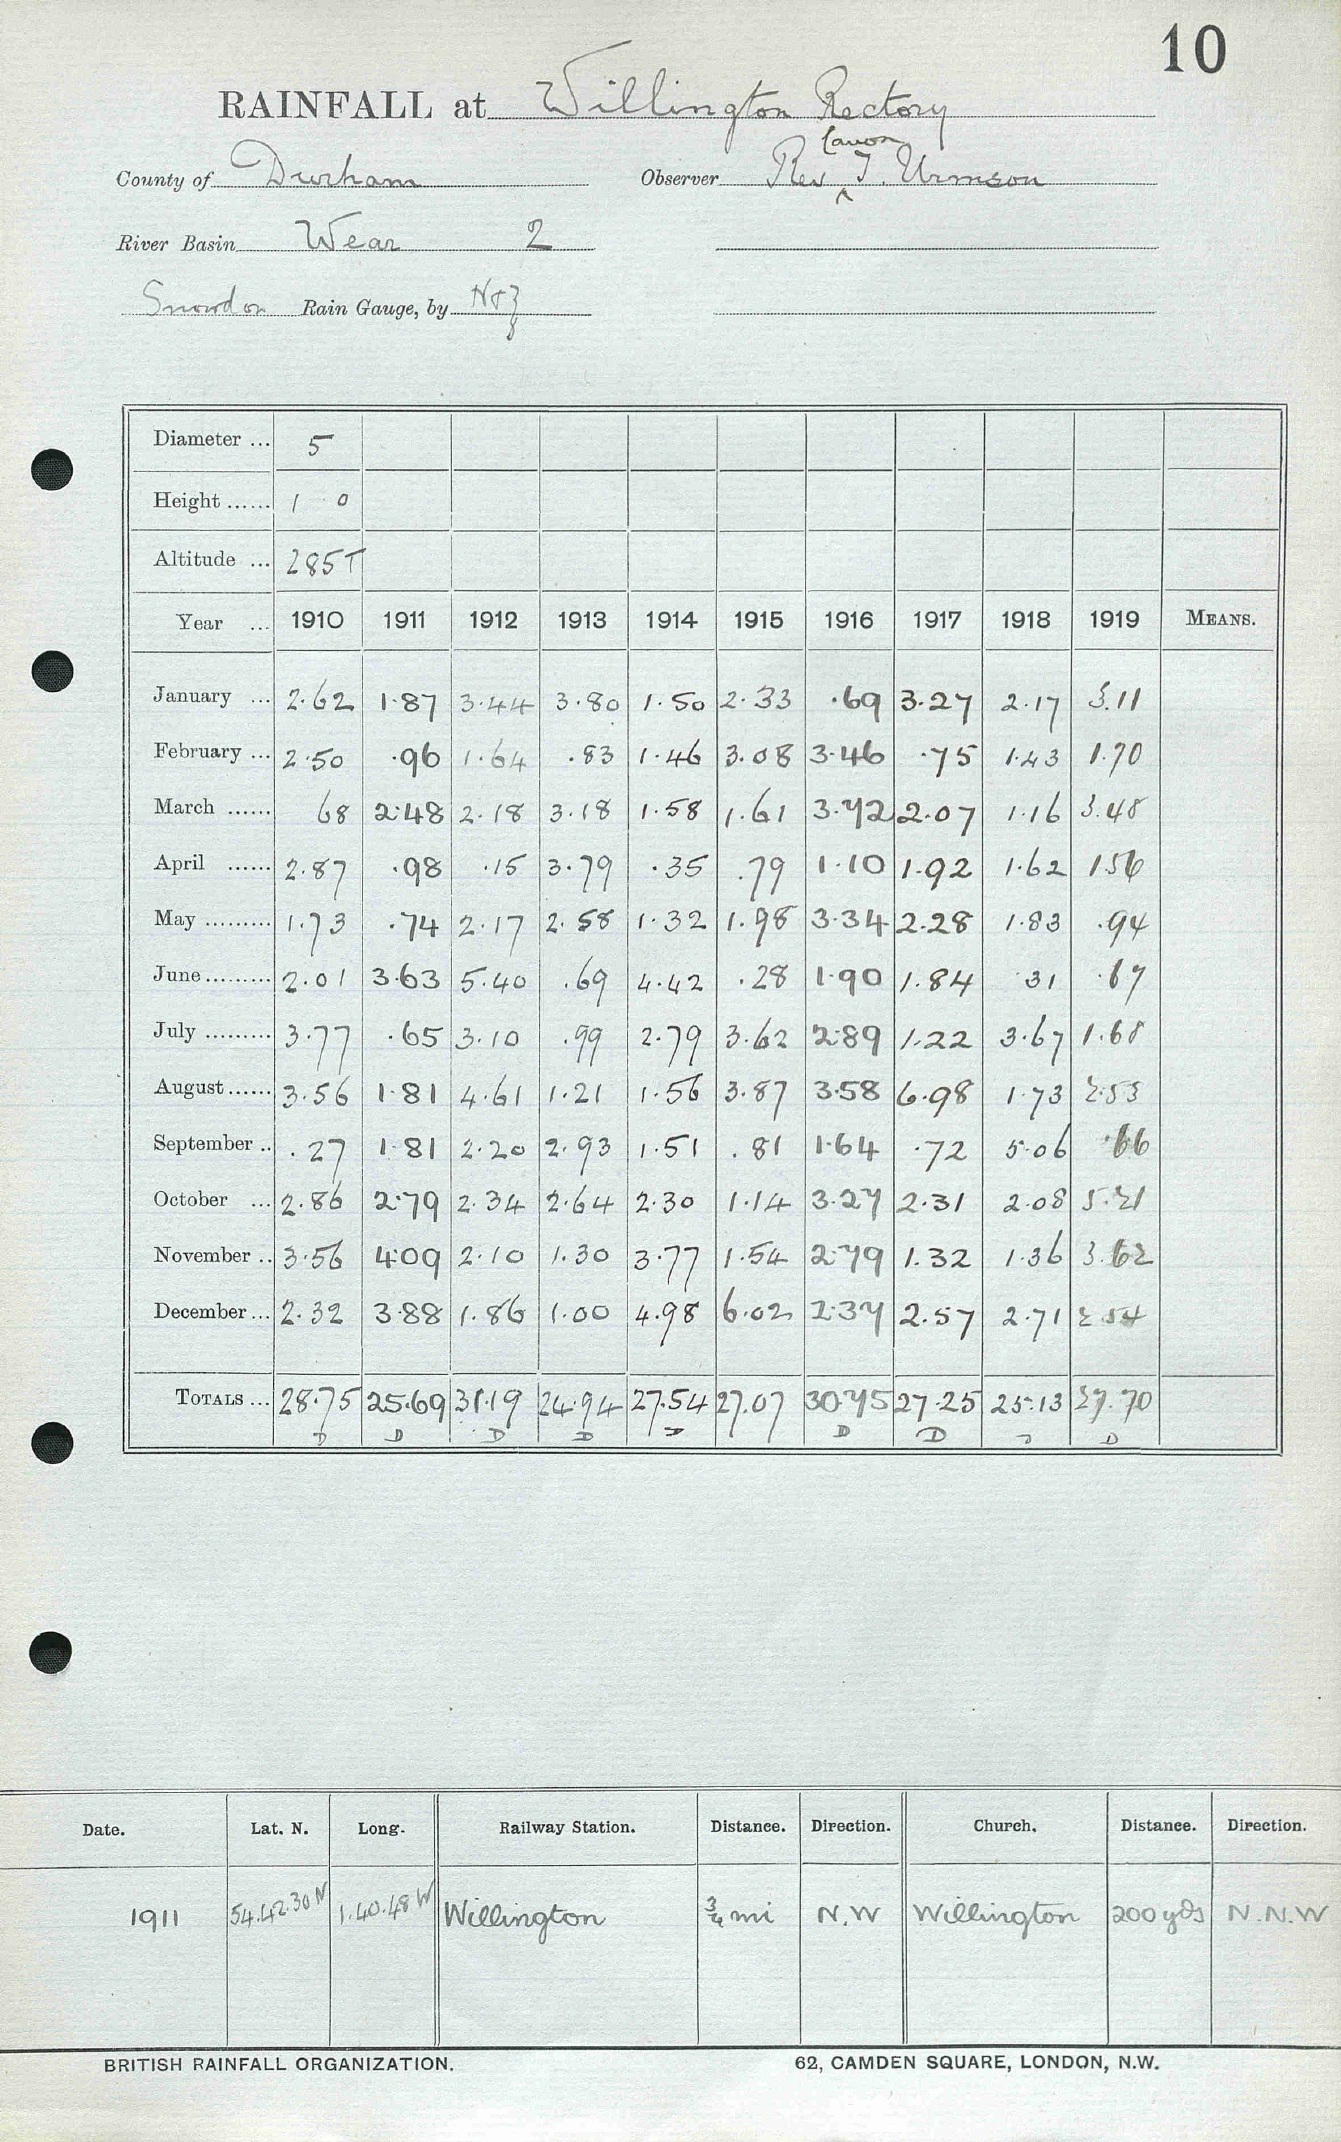 10
RAINFALL at Willington Rectory
Canon
County of Durham Observer Rev ^ T. Urmson
River Basin Wear 2
Snowdon Rain Gauge, by N&Z
Diameter ... 5
Height ...... 1 0
Altitude ... 285T
Year ... 1910 1911 1912 1913 1914 1915 1916 1917 1918 1919 MEANS.
January ... 2.62 1.87 3.44 3.80 1.50 2.33 .69 3.27 2.17 3.11
February ... 2.50 .96 1.64 .83 1.46 3.08 3.46 .75 1.43 1.70
March ...... 68 2.48 2.18 3.18 1.58 1.61 3.72 2.07 1.16 3.48
April ...... 2.87 .98 .15 3.79 .35 .79 1.10 1.92 1.62 1.56
May ......... 1.73 .74 2.17 2.58 1.32 1.98 3.34 2.28 1.83 .94
June ......... 2.01 3.63 5.40 .69 4.42 .28 1.90 1.84 .31 .67
July ......... 3.77 .65 3.10 .99 2.79 3.62 2.89 1.22 3.67 1.68
August ...... 3.56 1.81 4.61 1.21 1.56 3.87 3.58 6.98 1.73 2.53
September .. .27 1.81 2.20 2.93 1.51 .81 1.64 .72 5.06 .66
October ... 2.86 2.79 2.34 2.64 2.30 1.14 3.27 2.31 2.08 5.21
November .. 3.56 4.09 2.10 1.30 3.77 1.54 2.79 1.32 1.36 3.62
December ... 2.32 3.88 1.86 1.00 4.98 6.02 2.37 2.57 2.71 2.54
TOTALS ... 28.75 25.69 31.19 24.94 27.54 27.07 30.75 27.25 25.13 27.70
D D D D D D D D D
Date. Lat. N. Long. Railway Station. Distance. Direction. Church. Distance. Direction.
1911 54.42.30N 1.40.48W Willington ¾ mi N.W Willington 200 yds N.N.W
BRITISH RAINFALL ORGANIZATION. 62, CAMDEN SQUARE, LONDON, N.W.